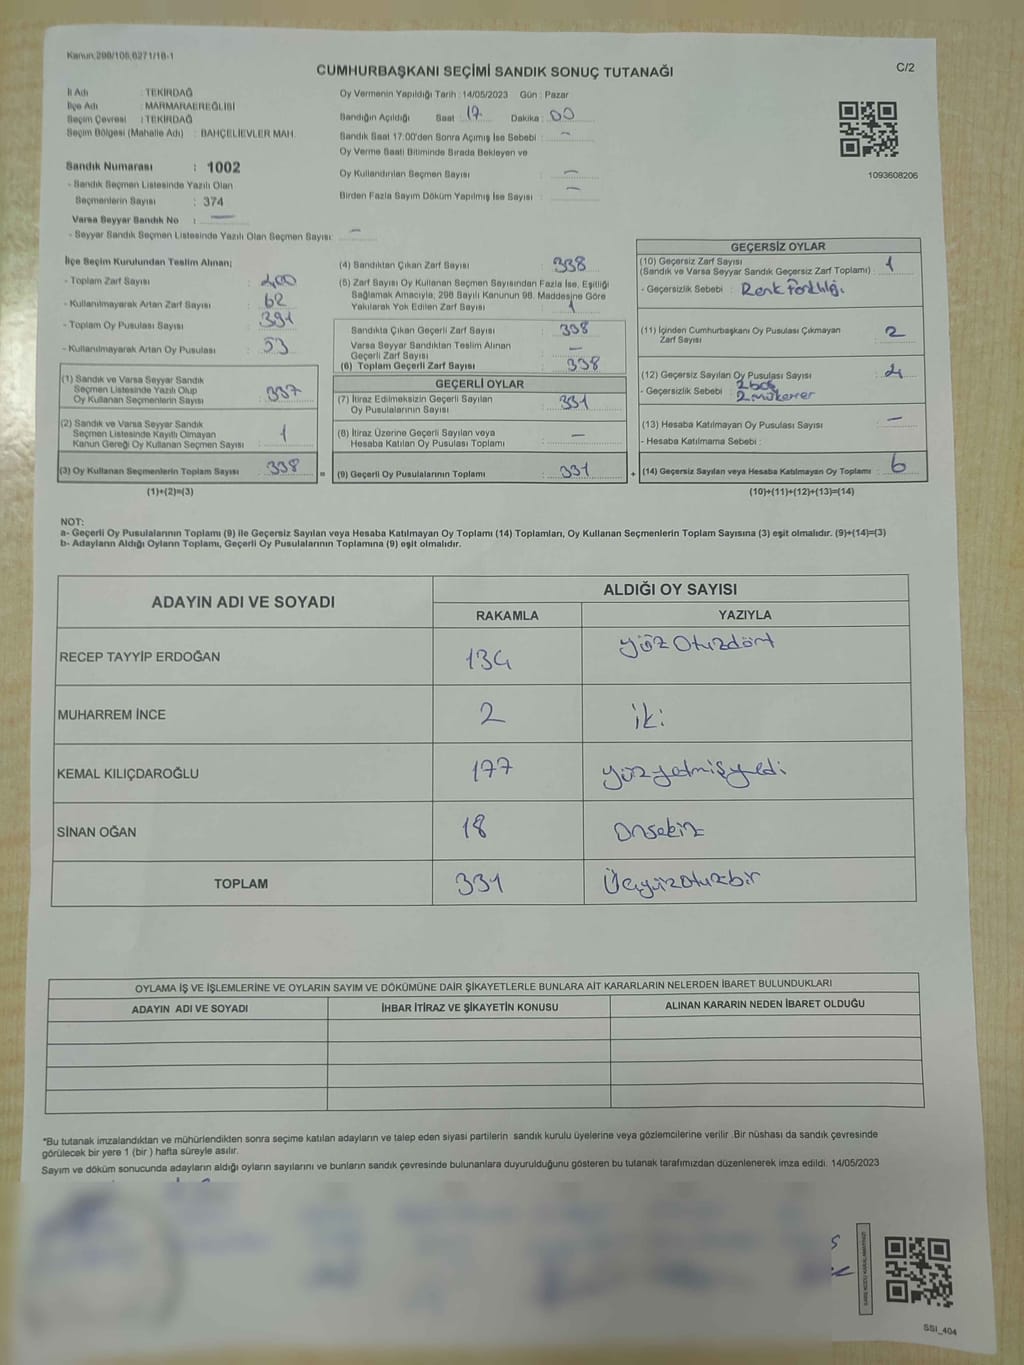 Kanun.298/105,6271/18-1
CUMHURBAŞKANI SEÇİMİ SANDIK SONUÇ TUTANAĞI
C/2
İl Adı : TEKİRDAĞ
İlçe Adı : MARMARAEREĞLİSİ
Seçim Çevresi : TEKİRDAĞ
Seçim Bölgesi (Mahalle Adı) : BAHÇELİEVLER MAH.
Sandık Numarası : 1002
- Sandık Seçmen Listesinde Yazılı Olan
Seçmenlerin Sayısı : 374
Varsa Seyyar Sandık No : —
- Seyyar Sandık Seçmen Listesinde Yazılı Olan Seçmen Sayısı: —
Oy Vermenin Yapıldığı Tarih : 14/05/2023 Gün : Pazar
Sandığın Açıldığı Saat : 17 Dakika : 00
Sandık Saat 17:00'den Sonra Açımış İse Sebebi : —
Oy Verme Saati Bitiminde Sırada Bekleyen ve
Oy Kullandırılan Seçmen Sayısı : —
Birden Fazla Sayım Döküm Yapılmış İse Sayısı : —
1093608206
İlçe Seçim Kurulundan Teslim Alınan;
- Toplam Zarf Sayısı : 400
- Kullanılmayarak Artan Zarf Sayısı : 62
- Toplam Oy Pusulası Sayısı : 391
- Kullanılmayarak Artan Oy Pusulası : 53
(1) Sandık ve Varsa Seyyar Sandık
Seçmen Listesinde Yazılı Olup
Oy Kullanan Seçmenlerin Sayısı : 337
(2) Sandık ve Varsa Seyyar Sandık
Seçmen Listesinde Kayıtlı Olmayan
Kanun Gereği Oy Kullanan Seçmen Sayısı : 1
(3) Oy Kullanan Seçmenlerin Toplam Sayısı : 338 =
(1)+(2)=(3)
(4) Sandıktan Çıkan Zarf Sayısı : 338
(5) Zarf Sayısı Oy Kullanan Seçmen Sayısından Fazla İse, Eşitliği
Sağlamak Amacıyla, 298 Sayılı Kanunun 98. Maddesine Göre
Yakılarak Yok Edilen Zarf Sayısı : 1
Sandıkta Çıkan Geçerli Zarf Sayısı : 338
Varsa Seyyar Sandıktan Teslim Alınan
Geçerli Zarf Sayısı : —
(6) Toplam Geçerli Zarf Sayısı : 338
GEÇERLİ OYLAR
(7) İtiraz Edilmeksizin Geçerli Sayılan
Oy Pusulalarının Sayısı : 331
(8) İtiraz Üzerine Geçerli Sayılan veya
Hesaba Katılan Oy Pusulası Toplamı : —
(9) Geçerli Oy Pusulalarının Toplamı : 331 +
GEÇERSİZ OYLAR
(10) Geçersiz Zarf Sayısı
(Sandık ve Varsa Seyyar Sandık Geçersiz Zarf Toplamı) : 1
- Geçersizlik Sebebi : Renk Farklılığı
(11) İçinden Cumhurbaşkanı Oy Pusulası Çıkmayan
Zarf Sayısı : 2
(12) Geçersiz Sayılan Oy Pusulası Sayısı : 4
- Geçersizlik Sebebi : 2 boş
2 mükerrer
(13) Hesaba Katılmayan Oy Pusulası Sayısı : —
- Hesaba Katılmama Sebebi :
(14) Geçersiz Sayılan veya Hesaba Katılmayan Oy Toplamı : 6
(10)+(11)+(12)+(13)=(14)
NOT:
a- Geçerli Oy Pusulalarının Toplamı (9) ile Geçersiz Sayılan veya Hesaba Katılmayan Oy Toplamı (14) Toplamları, Oy Kullanan Seçmenlerin Toplam Sayısına (3) eşit olmalıdır. (9)+(14)=(3)
b- Adayların Aldığı Oyların Toplamı, Geçerli Oy Pusulalarının Toplamına (9) eşit olmalıdır.
ADAYIN ADI VE SOYADI
ALDIĞI OY SAYISI
RAKAMLA YAZIYLA
RECEP TAYYİP ERDOĞAN 134 yüz otuzdört
MUHARREM İNCE 2 iki
KEMAL KILIÇDAROĞLU 177 yüzyetmişyedi
SİNAN OĞAN 18 Onsekiz
TOPLAM 331 Üçyüzotuzbir
OYLAMA İŞ VE İŞLEMLERİNE VE OYLARIN SAYIM VE DÖKÜMÜNE DAİR ŞİKAYETLERLE BUNLARA AİT KARARLARIN NELERDEN İBARET BULUNDUKLARI
ADAYIN ADI VE SOYADI İHBAR İTİRAZ VE ŞİKAYETİN KONUSU ALINAN KARARIN NEDEN İBARET OLDUĞU
*Bu tutanak imzalandıktan ve mühürlendikten sonra seçime katılan adayların ve talep eden siyasi partilerin sandık kurulu üyelerine veya gözlemcilerine verilir .Bir nüshası da sandık çevresinde
görülecek bir yere 1 (bir ) hafta süreyle asılır.
Sayım ve döküm sonucunda adayların aldığı oyların sayılarını ve bunların sandık çevresinde bulunanlara duyurulduğunu gösteren bu tutanak tarafımızdan düzenlenerek imza edildi. 14/05/2023
SSI_404